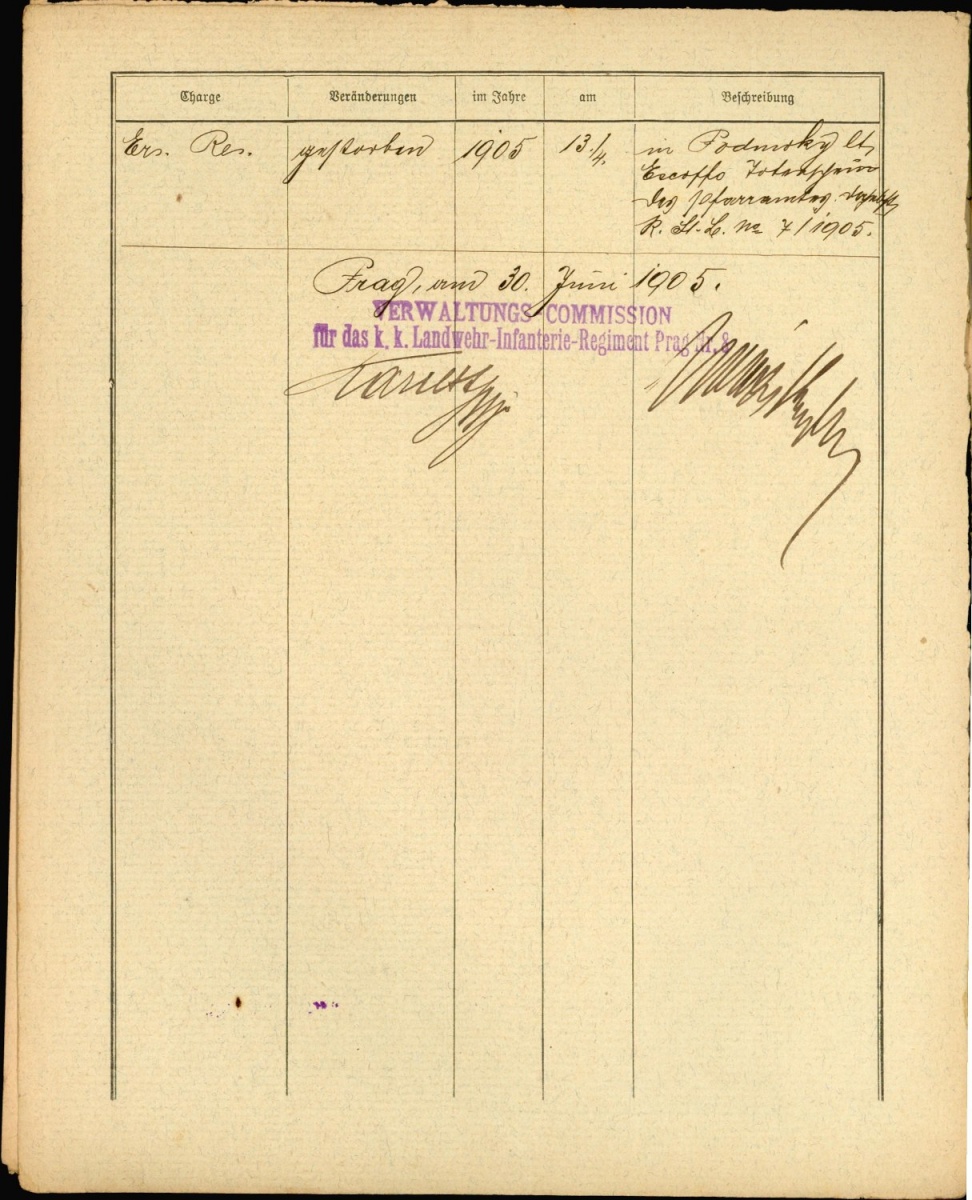 Charge Veränderungen im Jahre am Beschreibung
Ers. Res. gestorben 1905 13./4. in Podmoky lt.
Totenschein
des Pfarramtes daselbst
R. St.-L. No 7/1905.
Prag, am 30. Juni 1905.
VERWALTUNGS-COMMISSION
für das k. k. Landwehr-Infanterie-Regiment Prag Nr. 8